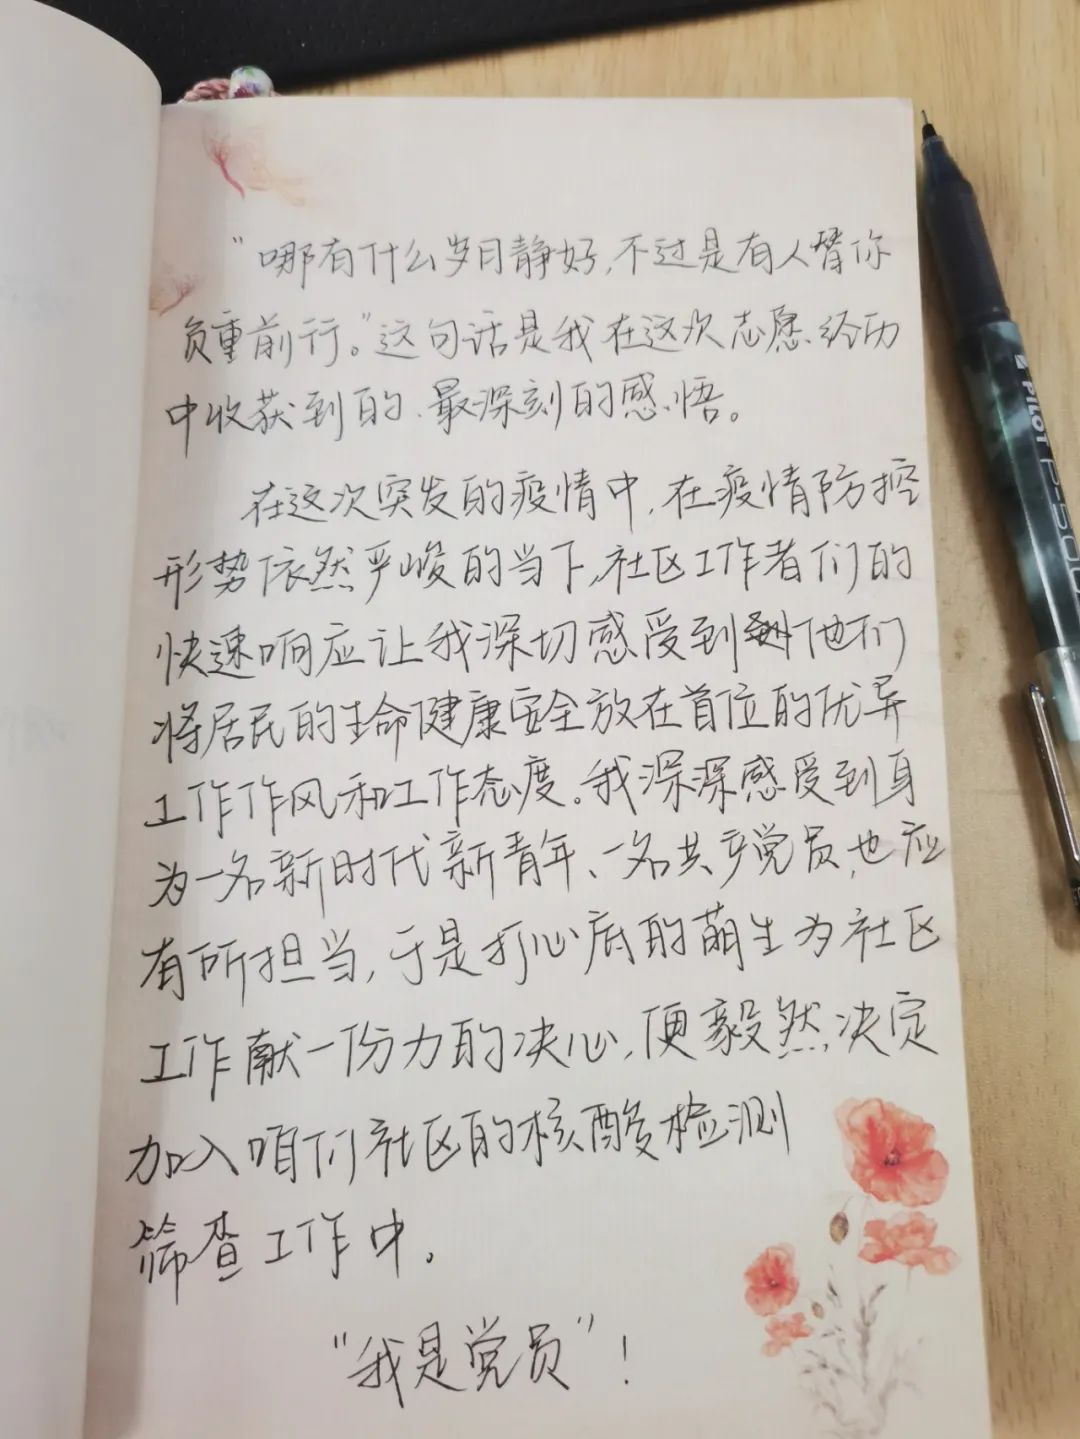 "哪有什么岁月静好,不过是有人替你
负重前行。"这句话是我在这次志愿经历
中收获到的、最深刻的感悟。
在这次突发的疫情中,在疫情防控
形势依然严峻的当下,社区工作者们的
快速响应让我深切感受到他们
将居民的生命健康安全放在首位的优异
工作作风和工作态度。我深深感受到身
为一名新时代新青年、一名共产党员,也应
有所担当,于是打心底的萌生为社区
工作献一份力的决心,便毅然决定
加入咱们社区的核酸检测
筛查工作中。
"我是党员"!
PILOT P-500